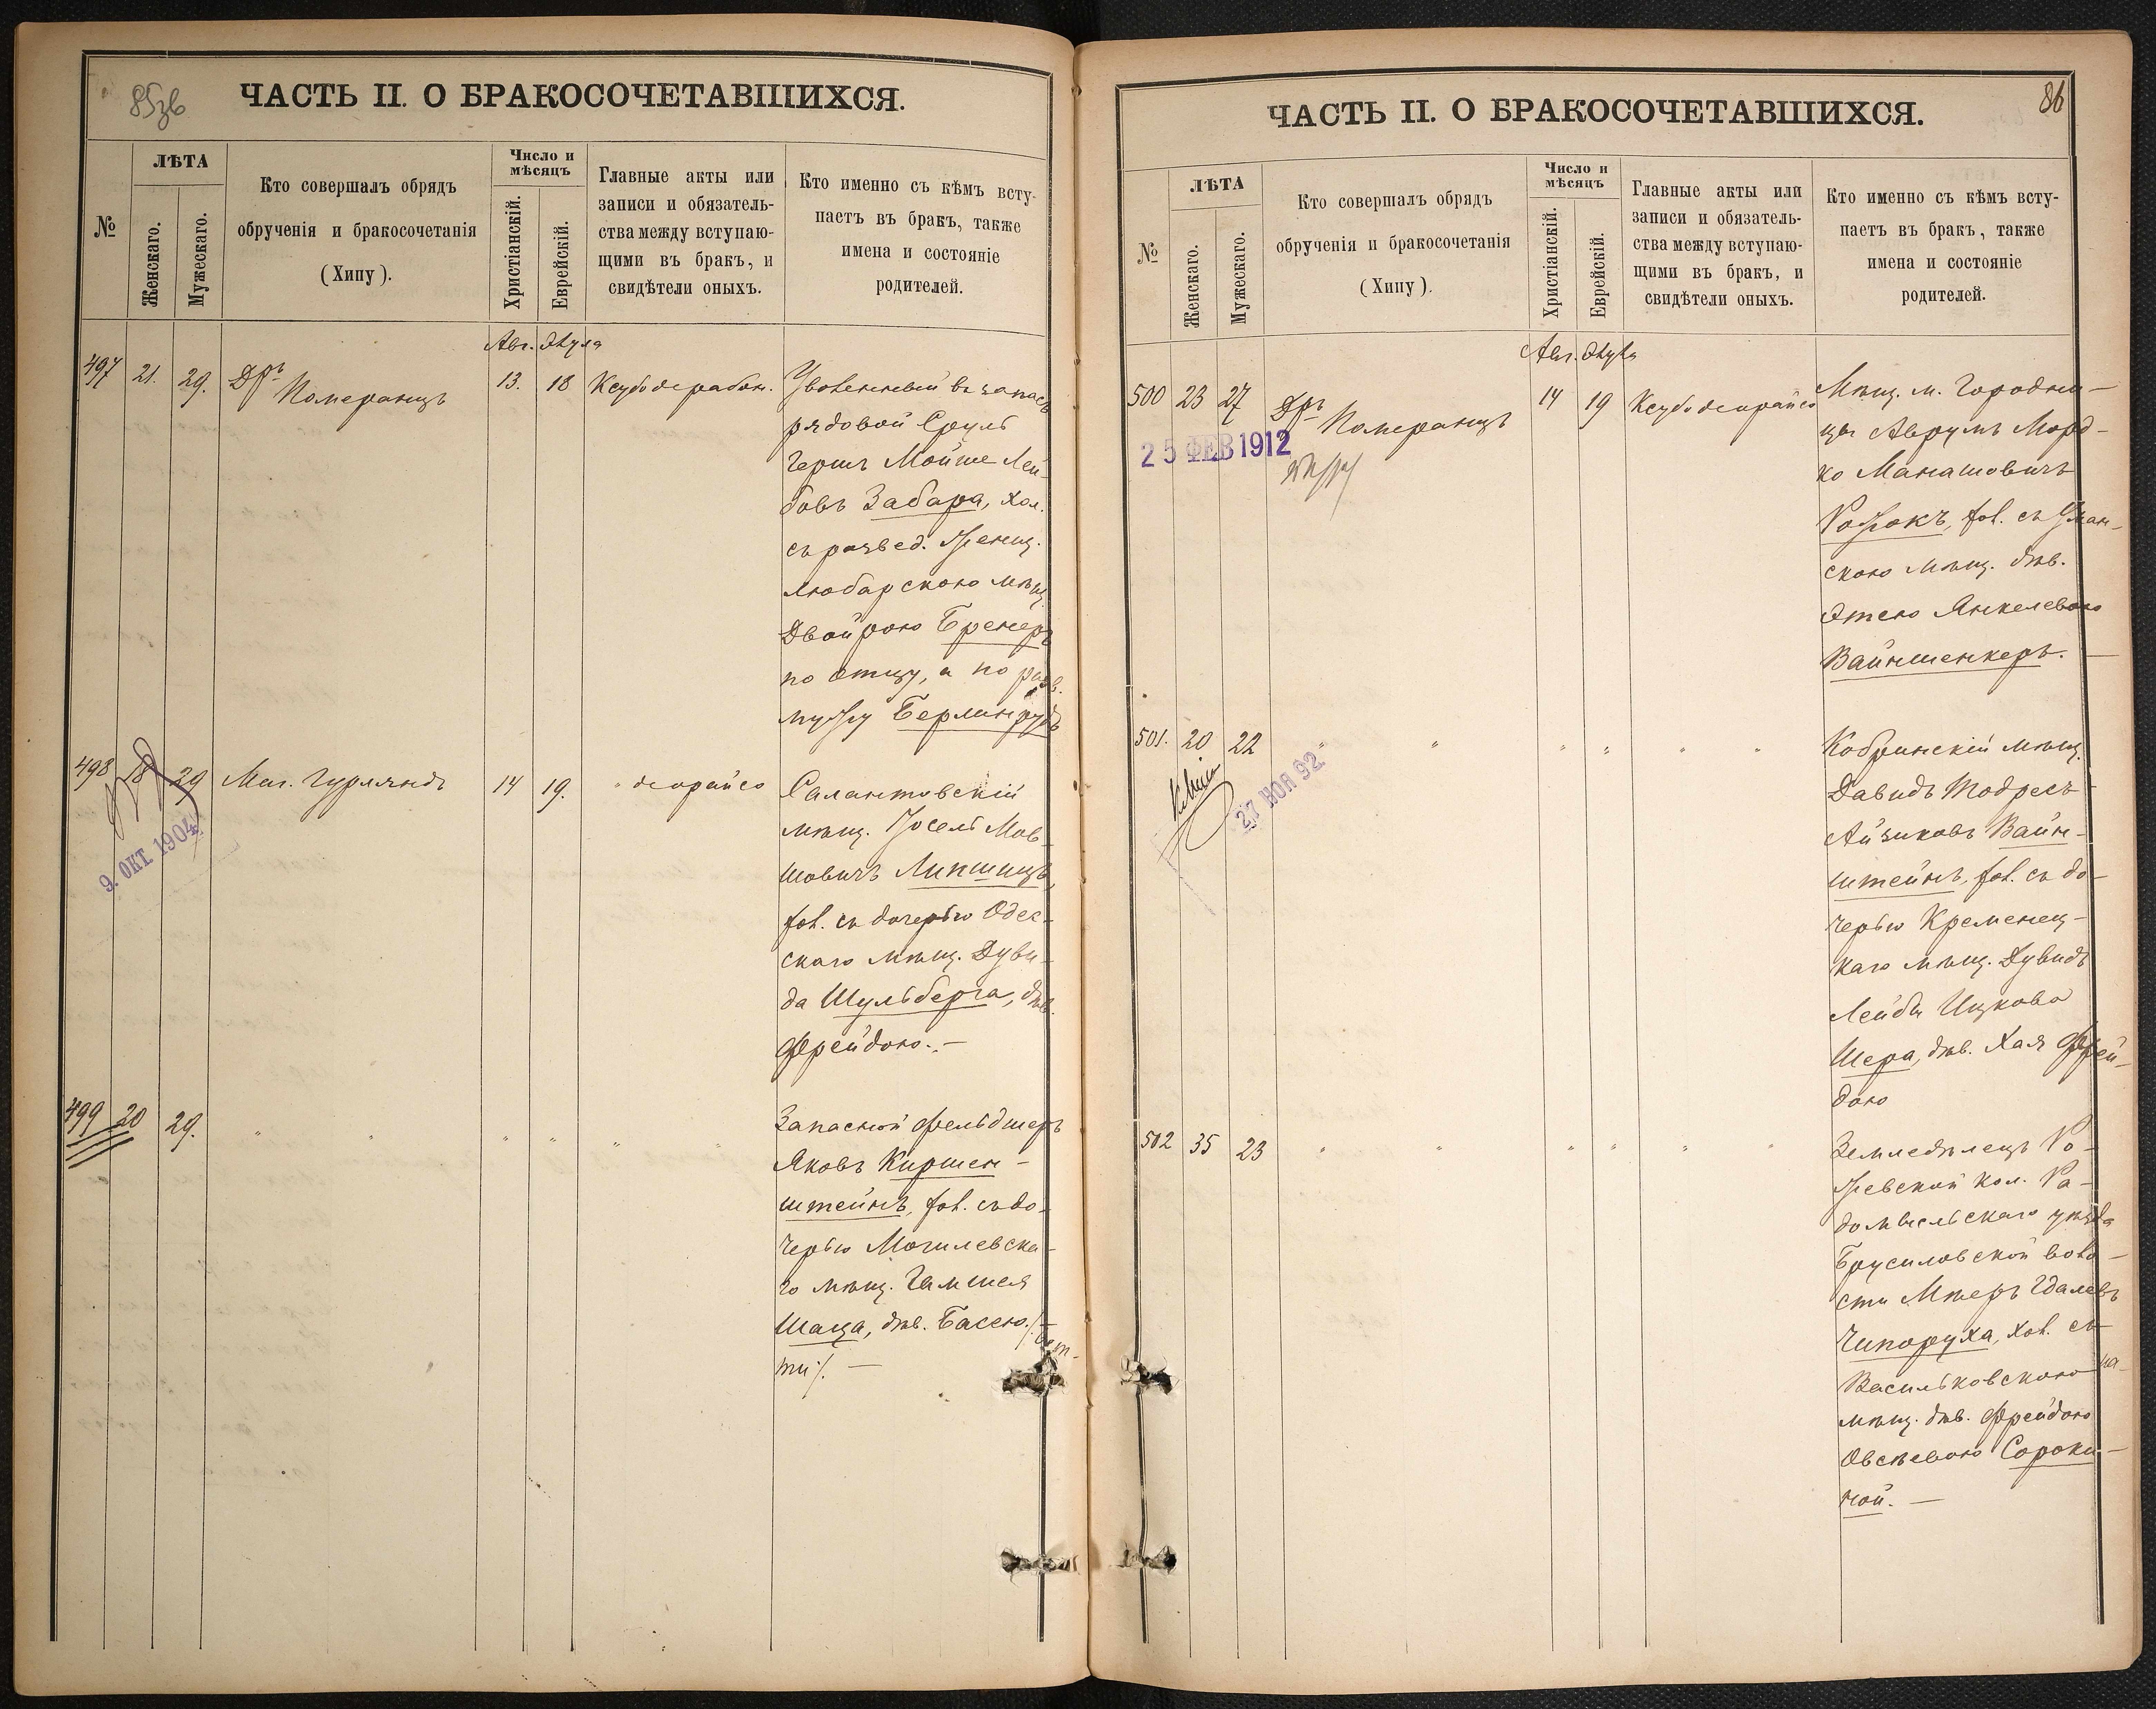 85зв
ЧАСТЬ II. О БРАКОСОЧЕТАВШИХСЯ.
№
ЛѢТА
Женскаго.
Мужескаго.
Кто совершалъ обрядъ
обрученія и бракосочетанія
(Хипу).
Число и
мѣсяцъ
Христіанскій.
Еврейскій.
Главные акты или
записи и обязатель-
ства между вступаю-
щими въ бракъ, и
свидѣтели оныхъ.
Кто именно съ кѣмъ всту-
паетъ въ бракъ, также
имена и состояніе
родителей.
Авг. Элула
497 21. 29. Дръ Померанцъ 13. 18 Ксубо дерабон. Уволенный въ запасъ
рядовой Сруль
Гершъ Мойше Лей-
бовъ Забара, хол.
съ развед. женщ.
Любарскою мѣщ.
Двойрою Бренеръ
по отцу, а по разв.
мужу Берлинрудъ
498 18 29 Маг. Гурляндъ 14 19. " деорайсо Салантовскій
9. ОКТ 1904
мѣщ. Іосель Мов-
шовичъ Липшицъ,
хол. съ дочерью Одес-
скаго мѣщ. Дуви-
да Шульберга, дѣв.
Фрейдою. —
499 20 29. " " " " " " Запасной фельдшеръ
Яковъ Киршен-
штейнъ, хол. съ до-
черью Могилевска-
го мѣщ. Гимшея
Шаца, дѣв. Басею. /: Бет-
ти:/. —
86
ЧАСТЬ II. О БРАКОСОЧЕТАВШИХСЯ.
№
ЛѢТА
Женскаго.
Мужескаго.
Кто совершалъ обрядъ
обрученія и бракосочетанія
(Хипу).
Число и
мѣсяцъ
Христіанскій.
Еврейскій.
Главные акты или
записи и обязатель-
ства между вступаю-
щими въ бракъ, и
свидѣтели оныхъ.
Кто именно съ кѣмъ всту-
паетъ въ бракъ, также
имена и состояніе
родителей.
Авг. Элула
500 23 27 Дръ Померанцъ 14 19 Ксубо деорайсо Мѣщ. м. Городни-
25 ФЕВ 1912
цы Аврумъ Морд-
ко Манашовичъ
Рожокъ, хол. съ Уман-
скою мѣщ. дѣв.
Этею Янкелевою
Вайншенкеръ. —
501. 20 22 " " " " " " Кобринскій мѣщ.
27 НОЯ 92
Давидъ Тодресъ
Айзиковъ Вайн-
штейнъ, хол. съ до-
черью Кременец-
каго мѣщ. Дувидъ
Лейбы Ицкова
Шера, дѣв. Хая Фрей-
дою
502 35 23 " " " " " " Земледѣлецъ Ро-
жевской кол. Ра-
домысльскаго уѣзда
Брусиловской воло-
сти Мееръ Гдалевъ
Чипоруха, хол. съ
Васильковскою
мѣщ. дѣв. Фрейдою
Овсѣевою Сороки-
ной. —